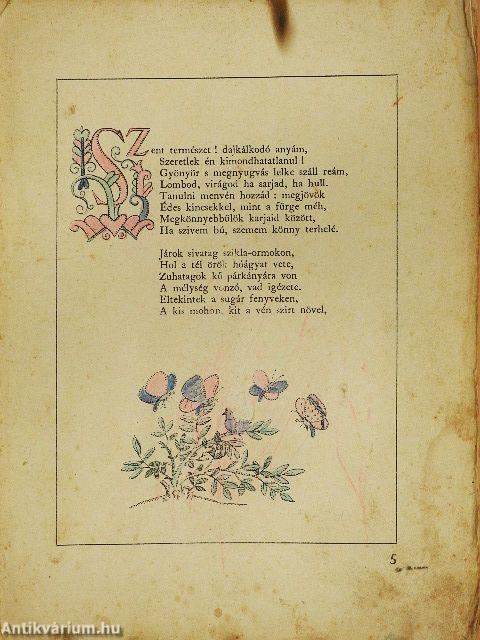 Szent természet! dajkálkodó anyám,
Szeretlek én kimondhatatlanul!
Gyönyör s megnyugvás lelke száll reám,
Lombod, virágod ha sarjad, ha hull.
Tanulni menvén hozzád: megjövök
Édes kincsekkel, mint a fürge méh,
Megkönnyebbülök karjaid között,
Ha szivem bú, szemem könny terhelé.
Járok sivatag szikla-ormokon,
Hol a tél örök hóágyat vete,
Zuhatagok kő párkányára von
A mélység vonzó, vad igézete.
Eltekintek a sugár fenyveken,
A kis mohon, kit a vén szirt növel,
5
Antikvárium.hu